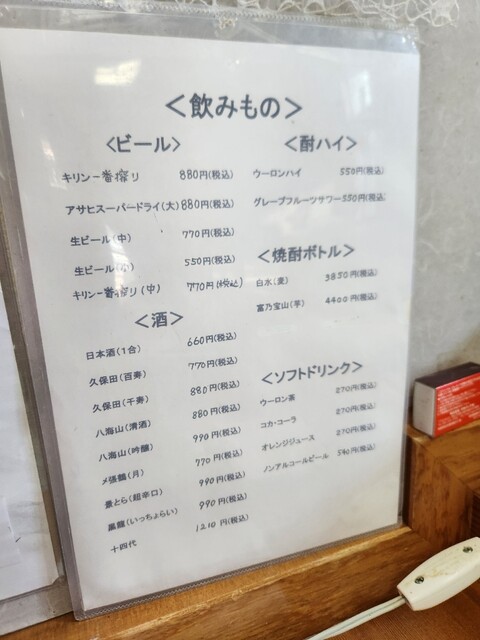 ＜飲みもの＞
＜ビール＞
キリン一番搾り 880円(税込)
アサヒスーパードライ(大) 880円(税込)
生ビール(中) 770円(税込)
生ビール(小) 550円(税込)
キリン一番搾り(中) 770円(税込)
＜酒＞
日本酒(1合) 660円(税込)
久保田(百寿) 770円(税込)
久保田(千寿) 880円(税込)
八海山(清酒) 880円(税込)
八海山(吟醸) 990円(税込)
〆張鶴(月) 770円(税込)
景とら(超辛口) 990円(税込)
黒龍(いっちょらい) 990円(税込)
十四代 1210円(税込)
＜酎ハイ＞
ウーロンハイ 550円(税込)
グレープフルーツサワー 550円(税込)
＜焼酎ボトル＞
白水(麦) 3850円(税込)
富乃宝山(芋) 4400円(税込)
＜ソフトドリンク＞
ウーロン茶 270円(税込)
コカ・コーラ 270円(税込)
オレンジジュース 270円(税込)
ノンアルコールビール 540円(税込)